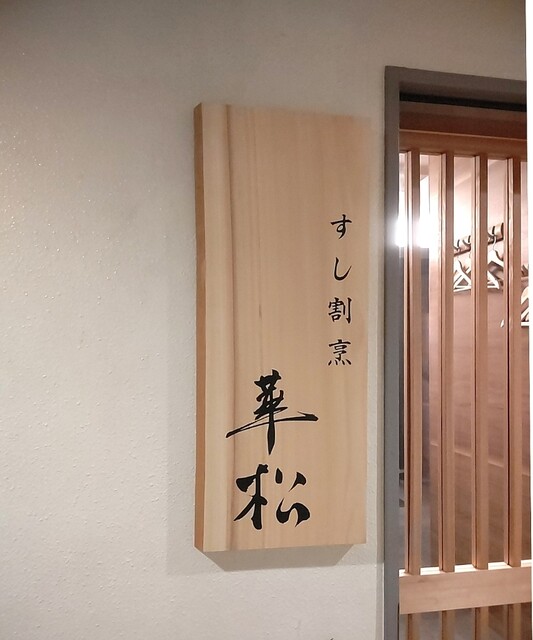 すし割烹
華松